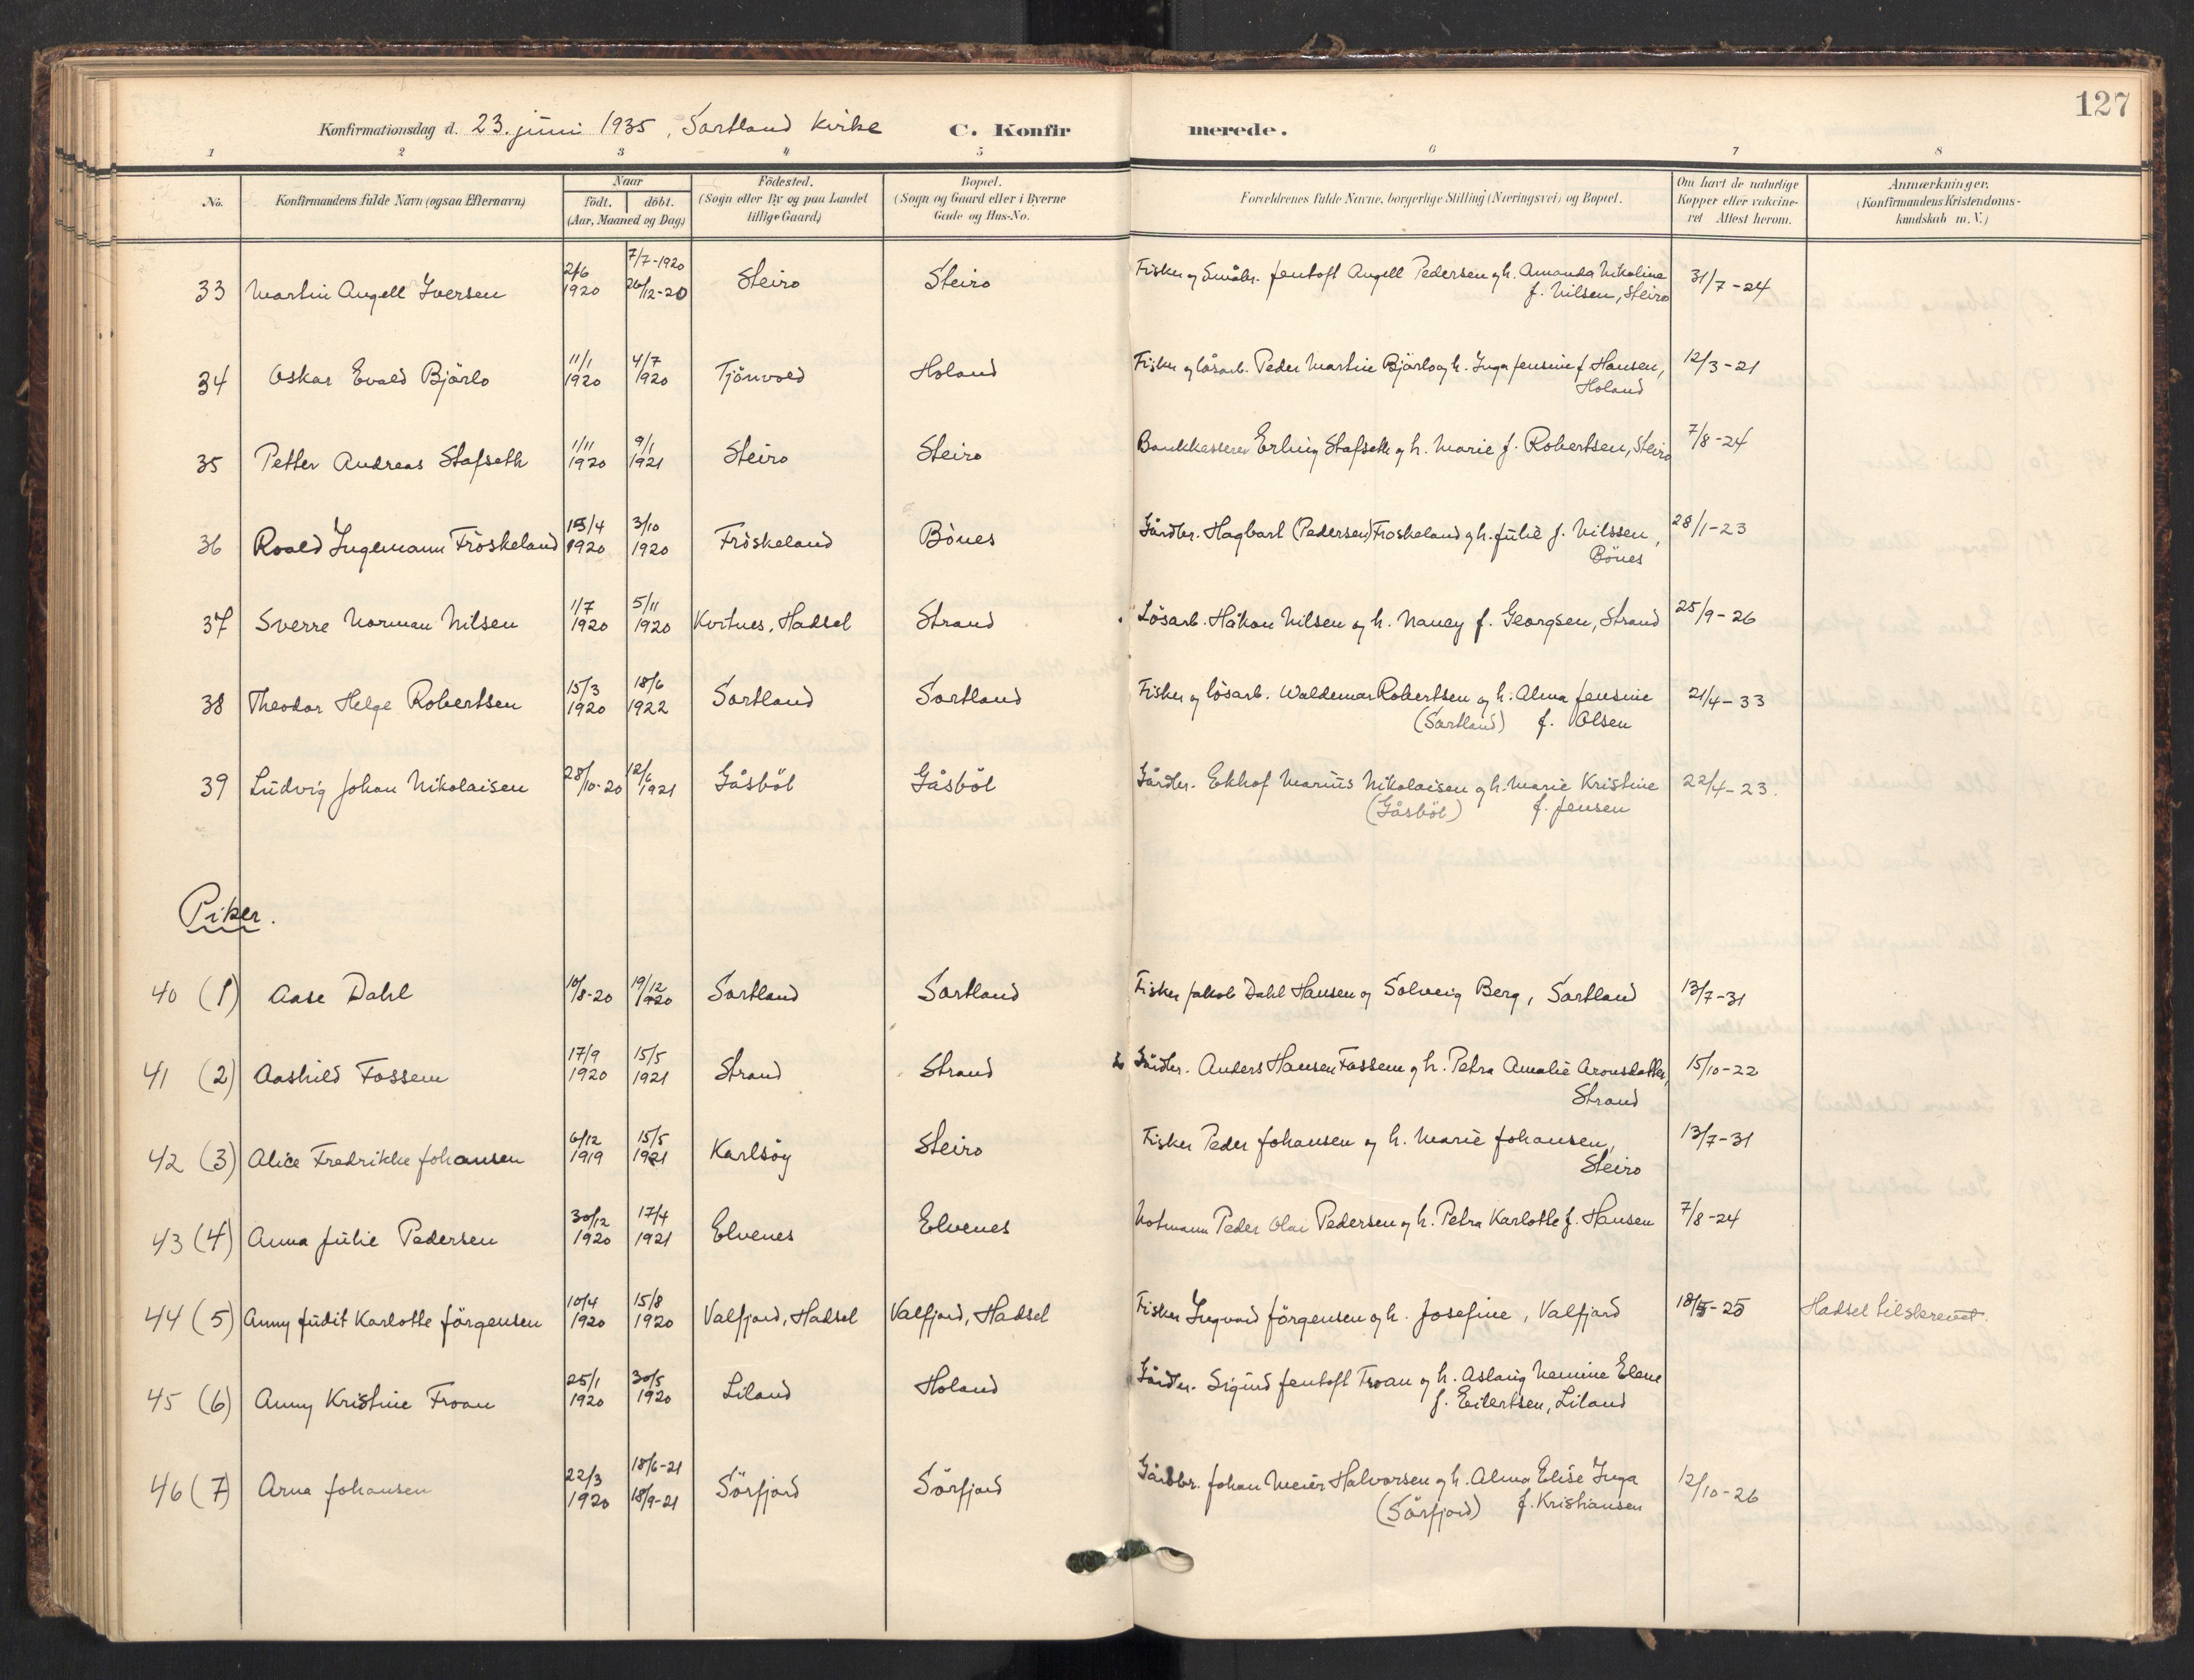 127
Konfirmationsdag d. 23. juni 1935, Sortland kirke C. Konfirmerede.
1 2 3 4 5 6 7 8
No. Konfirmandens fulde Navn (ogsaa Efternavn) Naar födt. döbt. (Aar, Maaned og Dag) Födested. (Sogn eller By og paa Landet tillige Gaard) Bopæl. (Sogn og Gaard eller i Byerne Gade og Hus-No. Forældrenes fulde Navne, borgerlige Stilling (Næringsvei) og Bopæl. Om havt de naturlige Kopper eller vakcineret Attest herom. Anmærkninger. (Konfirmandens Kristendomskundskab m.V.)
33 Martin Angell Iversen 2/6 1920 7/7-1920 26/12-20 Steiro Steiro Fisker og Småbr. Jentoft Angell Pedersen og h. Amanda Nikoline f. Nilsen, Steiro 31/7-24
34 Oskar Evald Bjørlo 11/1 1920 4/7 1920 Tjönvold Holand Fisker og lösarb. Peder Martin Bjørlo og h. Inga Jensine f. Hansen, Holand 12/3-21
35 Petter Andreas Stafseth 1/11 1920 9/1 1921 Steiro Steiro Bankkasserer Erling Stafseth og h. Marie f. Robertsen, Steiro 7/8-24
36 Roald Ingemann Fröskeland 15/4 1920 3/10 1920 Fröskeland Bönes Gårdbr. Hagbart (Pedersen) Froskeland og h. Julie f. Nilssen, Bönes 28/1-23
37 Sverre Norman Nilsen 1/7 1920 5/11 1920 Kvitnes, Hadsel Strand Lösarb. Håkon Nilsen og h. Nancy f. Georgsen, Strand 25/9-26
38 Theodor Helge Robertsen 15/3 1920 18/6 1922 Sortland Sortland Fisker og lösarb. Waldemar Robertsen og h. Alma Jensine (Sortland) f. Olsen 21/4-33
39 Ludvig Johan Nikolaisen 28/10-20 12/6 1921 Gåsböl Gåsböl Gårdbr. Ekhof Marius Nikolaisen og h. Marie Kristine (Gåsböl) f. Jensen 22/4-23.
Piker.
40 (1) Aase Dahl 10/8-20 19/12 1920 Sortland Sortland Fisker Jakob Dahl Hansen og Solveig Berg, Sortland 13/7-31
41 (2) Aashild Fossem 17/9 1920 15/5 1921 Strand Strand Gårdbr. Anders Hansen Fossem og h. Petra Amalie Aronsdatter, Strand 15/10-22
42 (3) Alice Fredrikke Johansen 6/12 1919 15/5 1921 Karlsöy Steiro Fisker Peder Johansen og h. Marie Johansen, Steiro 13/7-31
43 (4) Anna Julie Pedersen 30/12 1920 17/4 1921 Elvenes Elvenes Notmann Peder Olai Pedersen og h. Petra Karlotte f. Hansen 7/8-24
44 (5) Anny Judit Karlotte Jörgensen 10/4 1920 15/8 1920 Valfjord, Hadsel Valfjord, Hadsel Fisker Ingvard Jörgensen og h. Josefine, Valfjord 18/5-25 Hadsel tilskrevet.
45 (6) Anny Kristine Troan 25/1 1920 30/5 1920 Liland Holand Gårdbr. Sigurd Jentoft Troan og h. Aslaug Nemine Elene f. Eilertsen, Liland
46 (7) Arna Johansen 22/3 1920 18/6-21 18/9-21 Sörfjord Sörfjord Gårdbr. Johan Meier Halvorsen og h. Alma Elise Inga (Sörfjord) f. Kristiansen 12/10-26